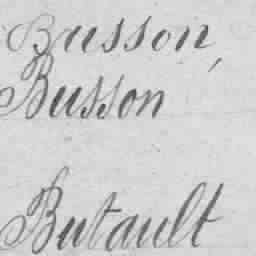 Busson,
Busson
Butault